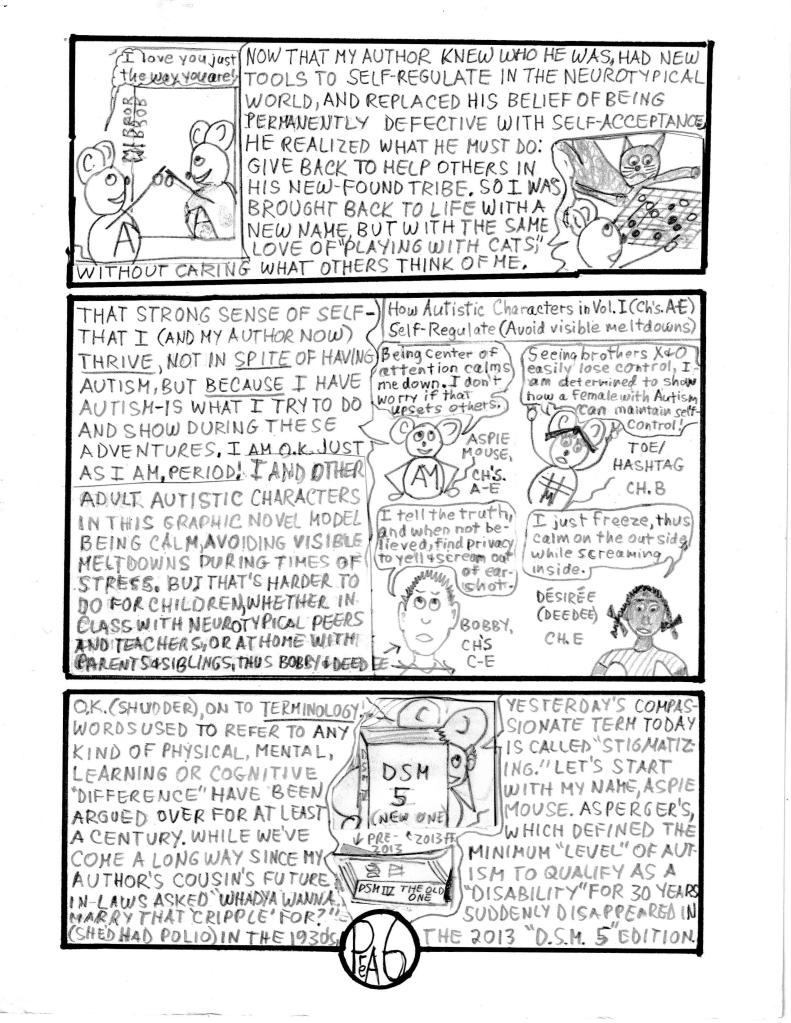 I love you just
the way you are!
MIRROR
MIRROR
A
A
NOW THAT MY AUTHOR KNEW WHO HE WAS, HAD NEW
TOOLS TO SELF-REGULATE IN THE NEUROTYPICAL
WORLD, AND REPLACED HIS BELIEF OF BEING
PERMANENTLY DEFECTIVE WITH SELF-ACCEPTANCE,
HE REALIZED WHAT HE MUST DO:
GIVE BACK TO HELP OTHERS IN
HIS NEW-FOUND TRIBE. SO I WAS
BROUGHT BACK TO LIFE WITH A
NEW NAME, BUT WITH THE SAME
LOVE OF "PLAYING WITH CATS,"
WITHOUT CARING WHAT OTHERS THINK OF ME.
THAT STRONG SENSE OF SELF-
THAT I (AND MY AUTHOR NOW)
THRIVE, NOT IN SPITE OF HAVING
AUTISM, BUT BECAUSE I HAVE
AUTISM-IS WHAT I TRY TO DO
AND SHOW DURING THESE
ADVENTURES. I AM O.K. JUST
AS I AM, PERIOD! I AND OTHER
ADULT AUTISTIC CHARACTERS
IN THIS GRAPHIC NOVEL MODEL
BEING CALM, AVOIDING VISIBLE
MELTDOWNS DURING TIMES OF
STRESS. BUT THAT'S HARDER TO
DO FOR CHILDREN, WHETHER IN
CLASS WITH NEUROTYPICAL PEERS
AND TEACHERS, OR AT HOME WITH
PARENTS & SIBLINGS, THUS BOBBY & DEEDEE
How Autistic Characters in Vol. I (Ch's. A-E)
Self-Regulate (Avoid visible meltdowns)
Being center of
attention calms
me down. I don't
worry if that
upsets others.
AM
ASPIE
MOUSE,
CH'S.
A-E
Seeing brothers X&O
easily lose control, I
am determined to show
how a female with Autism
can maintain self-
control!
#
TOE/
HASHTAG
CH. B
I tell the truth,
and when not be-
lieved, find privacy
to yell & scream out
of ear-
shot.
BOBBY,
CH'S
C-E
I just freeze, thus
calm on the outside,
while screaming
inside.
DÉSIRÉE
(DEEDEE)
CH. E
O.K. (SHUDDER), ON TO TERMINOLOGY!
WORDS USED TO REFER TO ANY
KIND OF PHYSICAL, MENTAL,
LEARNING OR COGNITIVE
"DIFFERENCE" HAVE BEEN
ARGUED OVER FOR AT LEAST
A CENTURY. WHILE WE'VE
COME A LONG WAY SINCE MY
AUTHOR'S COUSIN'S FUTURE
IN-LAWS ASKED "WHADYA WANNA
MARRY THAT 'CRIPPLE' FOR?"
(SHE'D HAD POLIO) IN THE 1930s,
DSM 5
DSM
5
(NEW ONE)
↓ PRE-
2013
↑ 2013 ff
DSM IV THE OLD
ONE
YESTERDAY'S COMPAS-
SIONATE TERM TODAY
IS CALLED "STIGMATIZ-
ING." LET'S START
WITH MY NAME, ASPIE
MOUSE. ASPERGER'S,
WHICH DEFINED THE
MINIMUM "LEVEL" OF AUT-
ISM TO QUALIFY AS A
"DISABILITY" FOR 30 YEARS
SUDDENLY DISAPPEARED IN
THE 2013 "D.S.M. 5" EDITION.